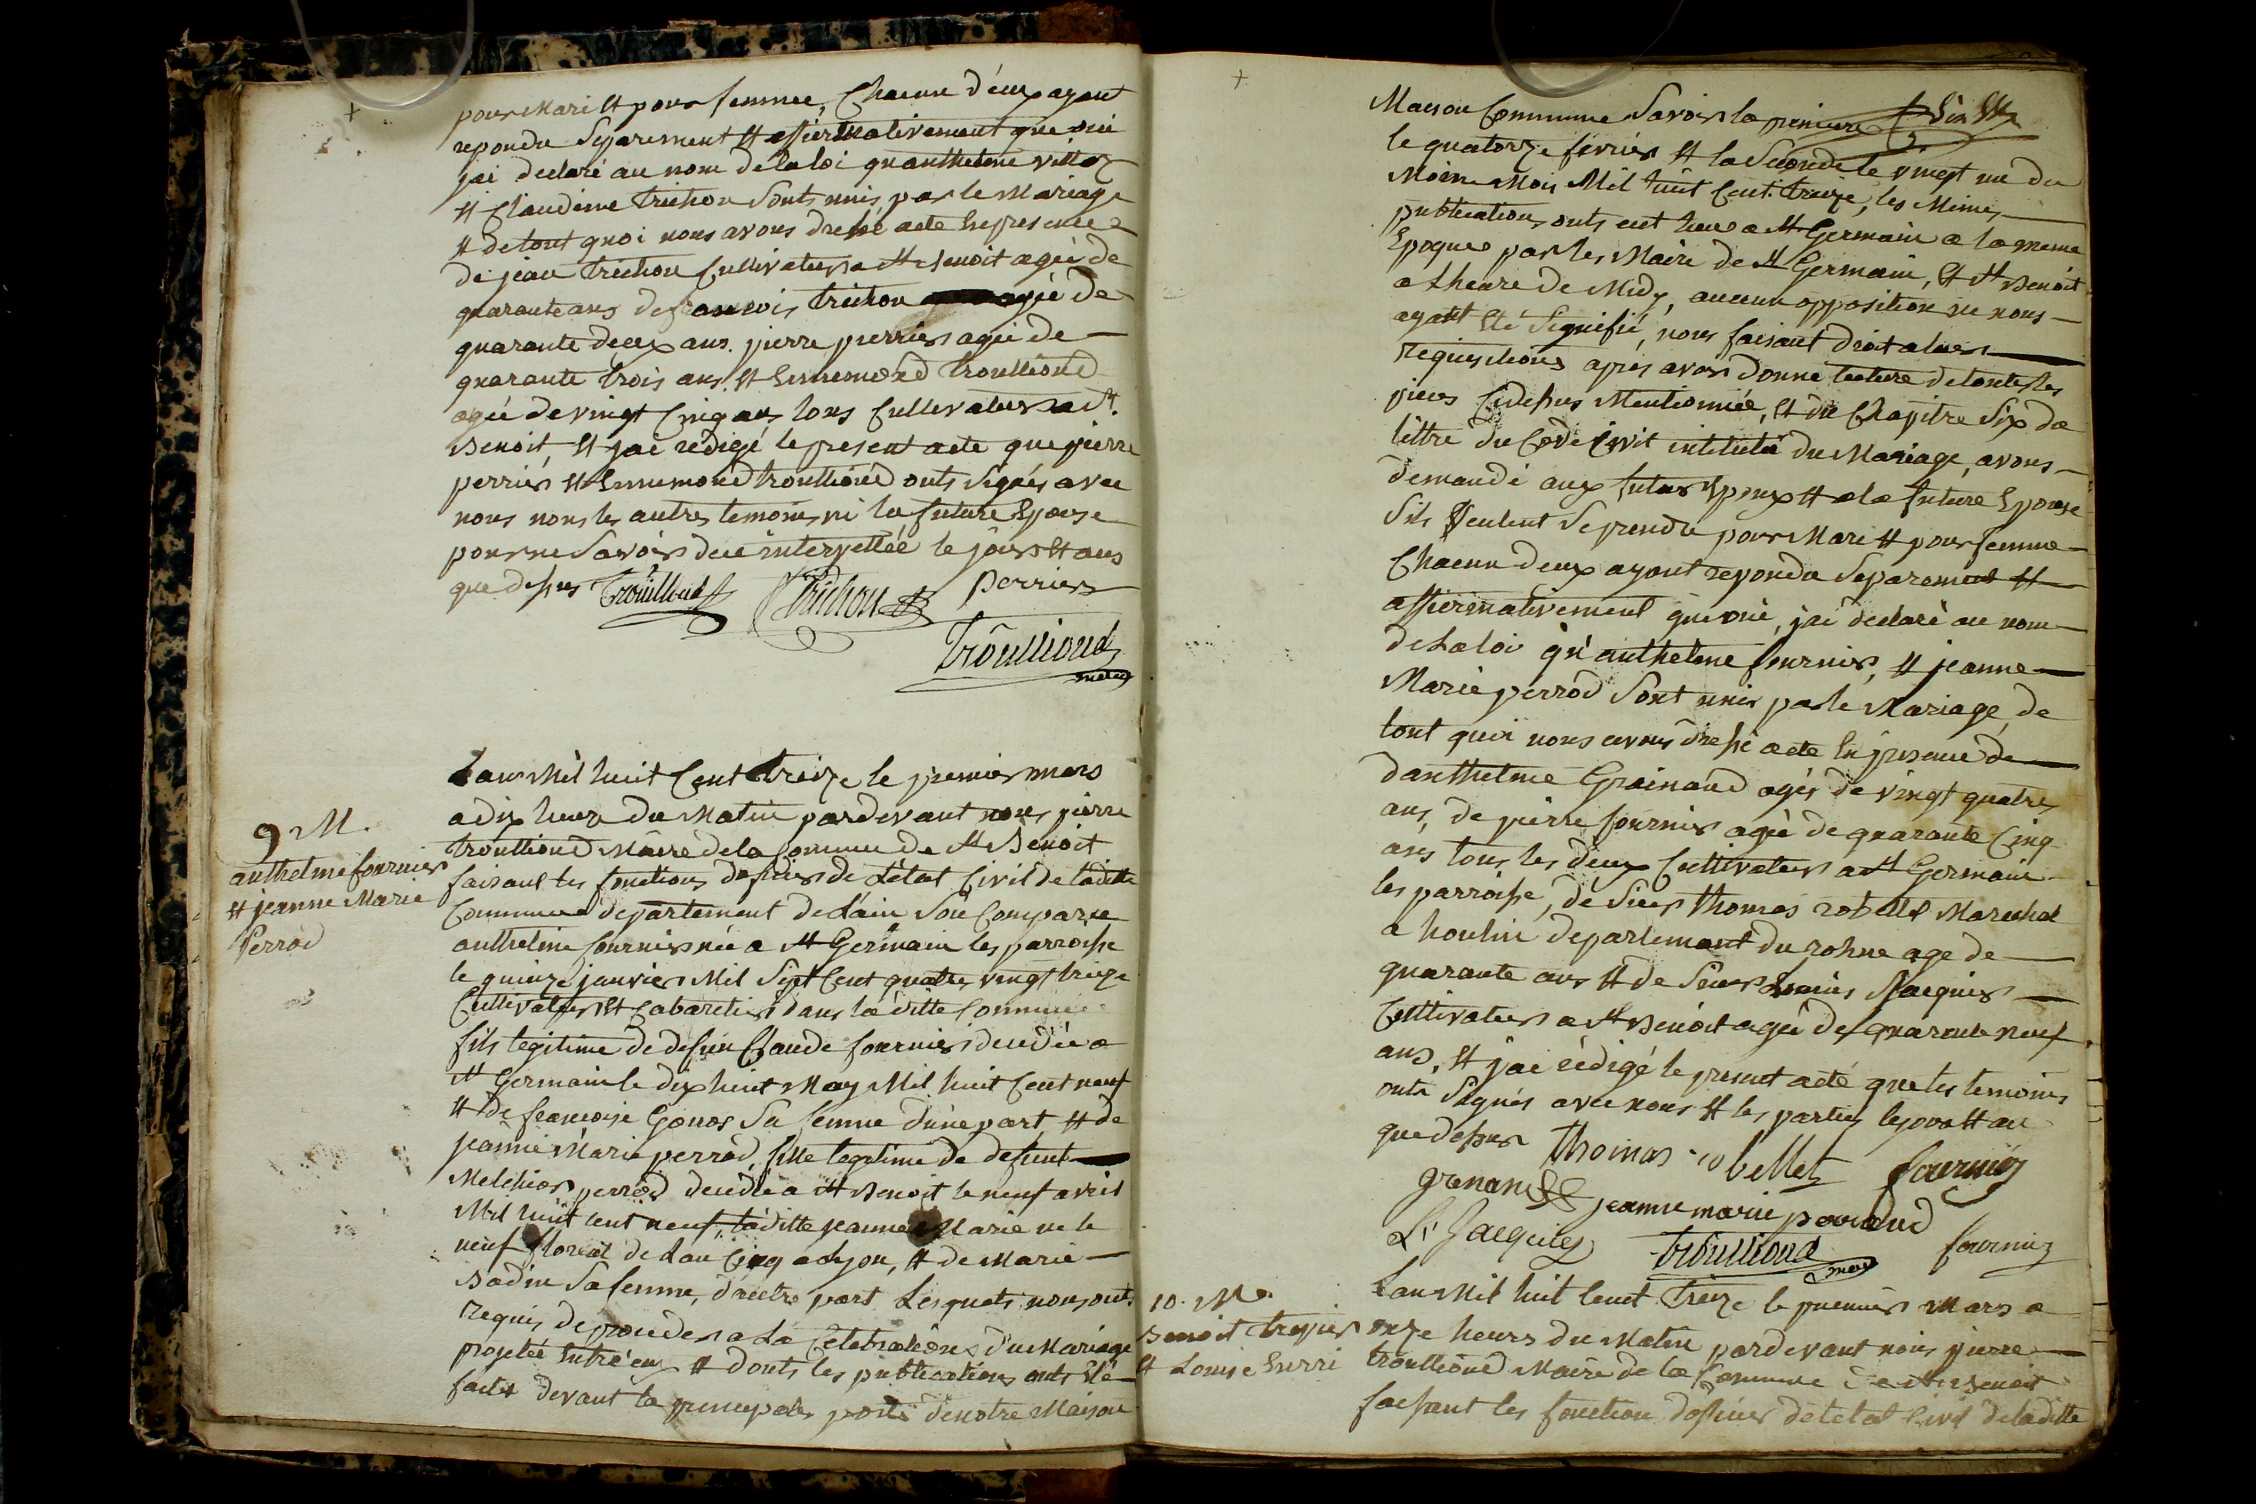 pour mari et pour femme, Chacun d'eux ayant
repondu Sparement et affirmativement que oui
jai declaré au nom de la loi quanthelme villoz
et Claudine trichon Sonts unis par le Mariage
et de tout quoi nous avons dressé acte En presence
de jean trichon Cultivateur a St Benoit agée de
quarante ans de francois trichon agée de
quarante deux ans. pierre perrier agée de
quarante trois ans. et Ennemond trouttioud
agée de vingt Cinq ans tous Cultivateurs a St.
Benoit, et jai rédigé le present acte que pierre
perrier et Ennemond trouttioud onts Signés avec
nous nons les autres temoins ni la future Epouse
pour ne Savoir de ce interpettée le jour et ans
que dessus trouilloud Trichon perrier
Troullioud
maire
Lan Mil huit Cent treize le premier mars
a dix heure du Matin pardevant nous pierre
trouttioud Maire de la Commune de St Benoit
9 M.
anthelme fournier
et jeanne Marie
Perrod
faisant les fonctions doficier de L'état Civil de laditte
Commune departement de L'ain Son Comparue
anthelme fournier née a St Germain les parroisse
le quinze janvier Mil Sept Cent quatre vingt treize
Cultivateur et Cabaretier dans laditte Commune
fils legitime de defun Claude fournier decedée a
St Germain le dix huit May Mil huit Cent neuf
et de francoise Gonos Sa femme d'une part, et de
jeanne Marie perrod, fille legitime de defunt
Melchior perrod decedée a St Benoit le neuf avril
Mil huit cent neuf, laditte jeanne Marie ne le
neuf floreal de Lan Cinq a Lyon, et de Marie
Badin Sa femme, d'autre part Lesquels nous onts
requis de proceder a La Celebrations du Mariage
projetée Entre eux et donts les publications onts Eté
faites devant la principale porte de notre Maison
Maison Commune Savoir la premiere
le quatorze fevrier et la Seconde le vingt un du
Meme Mois Mil huit Cent treize, les Mêmes
publications onts eut lieu a St Germain a la meme
Epoque par les Maire de St Germain, et St Benoit
a Lheure de Midy, aucun opposition ne nous
ayant Eté Signifié, nous faisant droit a leurs
requisitions apres avoir donne lecture de toutes les
pieces Cidessus Mentionnée, et du Chapitre Six de
littre du Code Civil intitulé du Mariage, avons
demandé aux futur Epoux et a la future Epouse
Sils veulent Seprendre pour Mari et pour femme
Chacun deux ayant repondu Separement et
affirmativement que oui, jai declaré au nom
de La loi qu'anthelme fournier, et jeanne
Marie perrod Sont unis par le Mariage, de
tout quoi nous avons dressé acte En presence de
danthelme Grainaud agés de vingt quatre
ans, de pierre fournier agée de quarante Cinq
ans tous les deux Cultivateur a St Germain
les parroisse, de Sieur thomas robellet Marechal
a houlin departement du rohne age de
quarante ans et de Sieur Louis Jacquier
Cultivateur a St Benoit agée de quarante neuf
ans, et jai rédigé le present acte que les temoins
onts Signés avec nous et les parties lejour et an
que dessus thomas robellet fournier
grenan jeanne marie perraud
L. Jacquier Troullioud fournier
maire
10. M.
Benoit trepier
et Louise
Lan Mil huit Cent treize le premier Mars a
onze heures du Matin pardevant nous pierre
trouttioud Maire de la Commune de St Benoit
faisant les fonction doficier de letat Civil de laditte